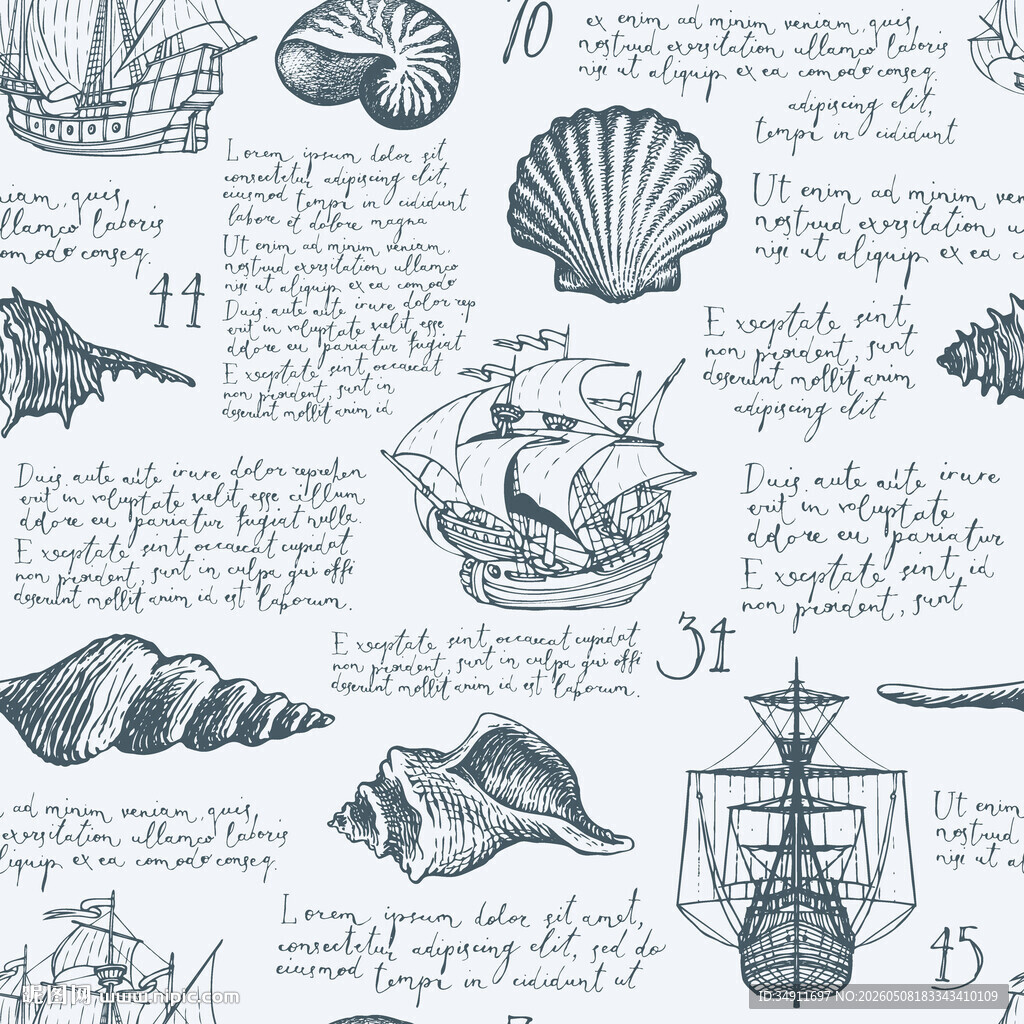 70
ex enim ad minim veniam, quis,
nostrud exersitation ullamco laboris
nisi ut aliquip ex ea comodo conseq.
adipiscing elit,
tempr in cididunt
Lorem ipsum dolor sit
consectetur adipiscing elit,
eiusmod tempr in cididunt
labore et dolore magna
Ut enim ad minim veniam,
nostrud exersitation ullamco
nisi ut aliquip ex ea comodo
Duis aute aute irure dolor rep
erit in voluptate velit esse
dolore eu pariatur fugiat
Exceptate sint, occaecat
non proident, sunt in
deserunt mollit anim id
niam, quis
ullamco laboris
omodo conseq.
44
Ut enim ad minim ven
nostrud exersitation u
nisi ut aliquip ex ea c
Exceptate sint
non proident, sunt
deserunt mollit anim
adipiscing elit
Duis aute aute irure dolor reprehen
erit in voluptate velit esse cillum
dolore eu pariatur fugiat nulla.
Exceptate sint, occaecat cupidat
non proident, sunt in culpa qui offi
deserunt mollit anim id est laborum.
Duis aute aute irure
erit in voluptate
dolore eu pariatur
Exceptate sint, id
non proident, sunt
Exceptate sint, occaecat cupidat
non proident, sunt in culpa qui offi
deserunt mollit anim id est laborum.
34
ad minim veniam, quis
exersitation ullamco laboris
liquip ex ea comodo conseq.
Ut enim
nostrud
nisi ut al
Lorem ipsum dolor sit amet,
consectetur adipiscing elit, sed do
eiusmod tempr in cididunt ut
45
昵图网 www.nipic.com
ID:34911697 NO:20260508183343410109